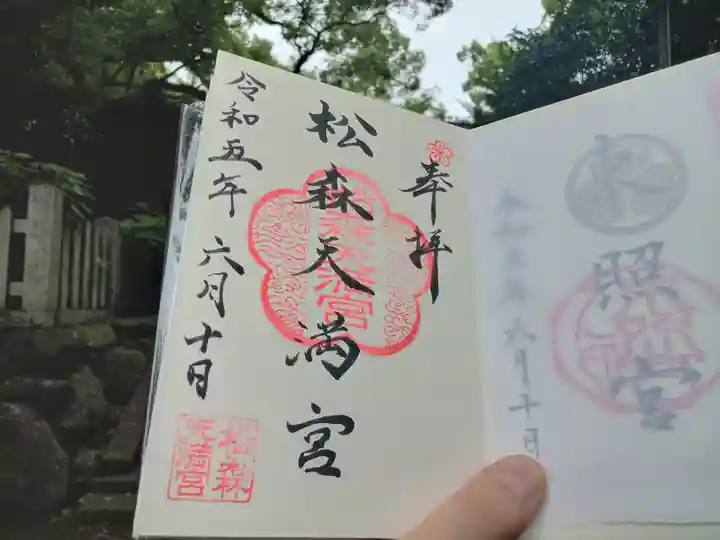 奉拝
松森天満宮
松森天満宮
令和五年 六月十日
松森
天満宮
照宮
六月十日